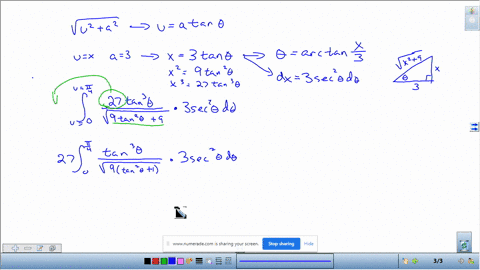 √(u²+a²) → u = a tanθ
u=x a=3 → x = 3 tanθ → θ = arctan x/3
x² = 9 tan²θ
x³ = 27 tan³θ
dx = 3 sec²θ dθ
√(x²+9) x θ 3
∫_{u=0}^{u=π/4} 27 tan³θ / √(9 tan²θ + 9) • 3 sec²θ dθ
27 ∫_0^{π/4} tan³θ / √(9(tan²θ+1)) • 3 sec²θ dθ
www.numerade.com is sharing your screen. Stop sharing Hide
3/3